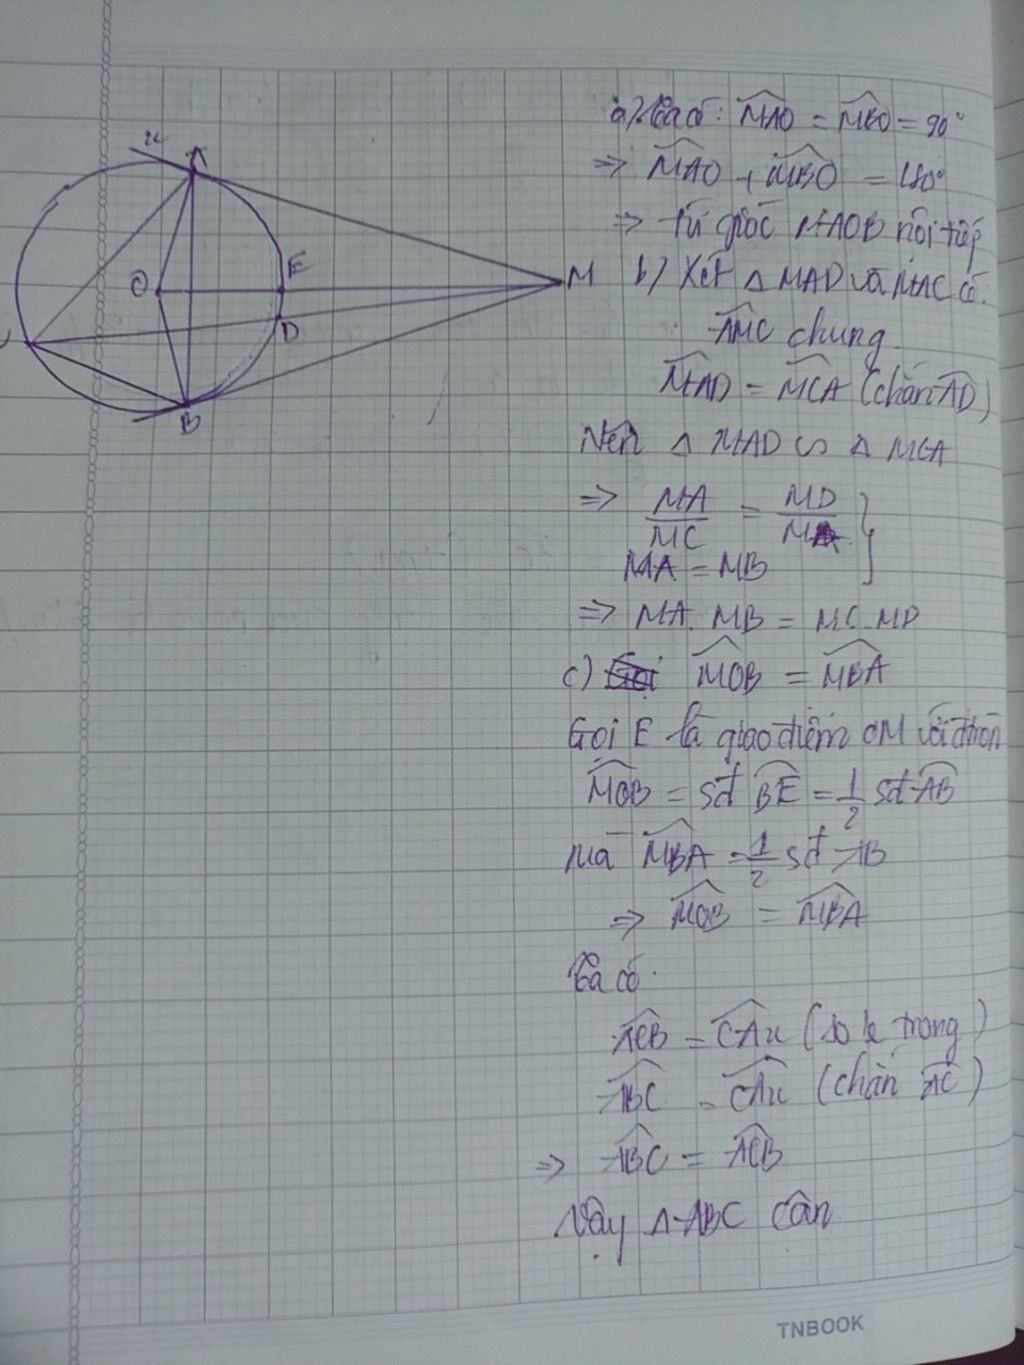 x
A
O
E
M
D
B
a) Ta có: MAO = MBO = 90°
=> MAO + MBO = 180°
=> Tứ giác MAOB nội tiếp
b) Xét Δ MAD và MAC có.
AMC chung
MAD = MCA (chắn AD)
Nên Δ MAD ∽ Δ MCA
=> MA/MC = MD/MA }
MA = MB
=> MA. MB = MC. MD
c) MOB = MBA
Gọi E là giao điểm OM với
MOB = sđ BE = 1/2 sđ AB
Mà MBA = 1/2 sđ AB
=> MOB = MBA
Ta có.
ACB = CAx (so le trong)
ABC = CAx (chắn AC)
=> ABC = ACB
Vậy Δ ABC cân
TNBOOK